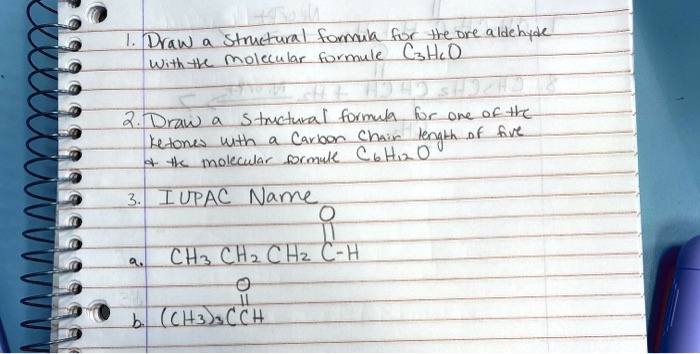 1. Draw a structural formula for the one aldehyde
with the molecular formule C3H6O
2. Draw a structural formula for one of the
ketones with a carbon chain length of five
& the molecular formule C6H12O
3. IUPAC Name
O
||
a. CH3 CH2 CH2 C-H
O
||
b. (CH3)3CCH